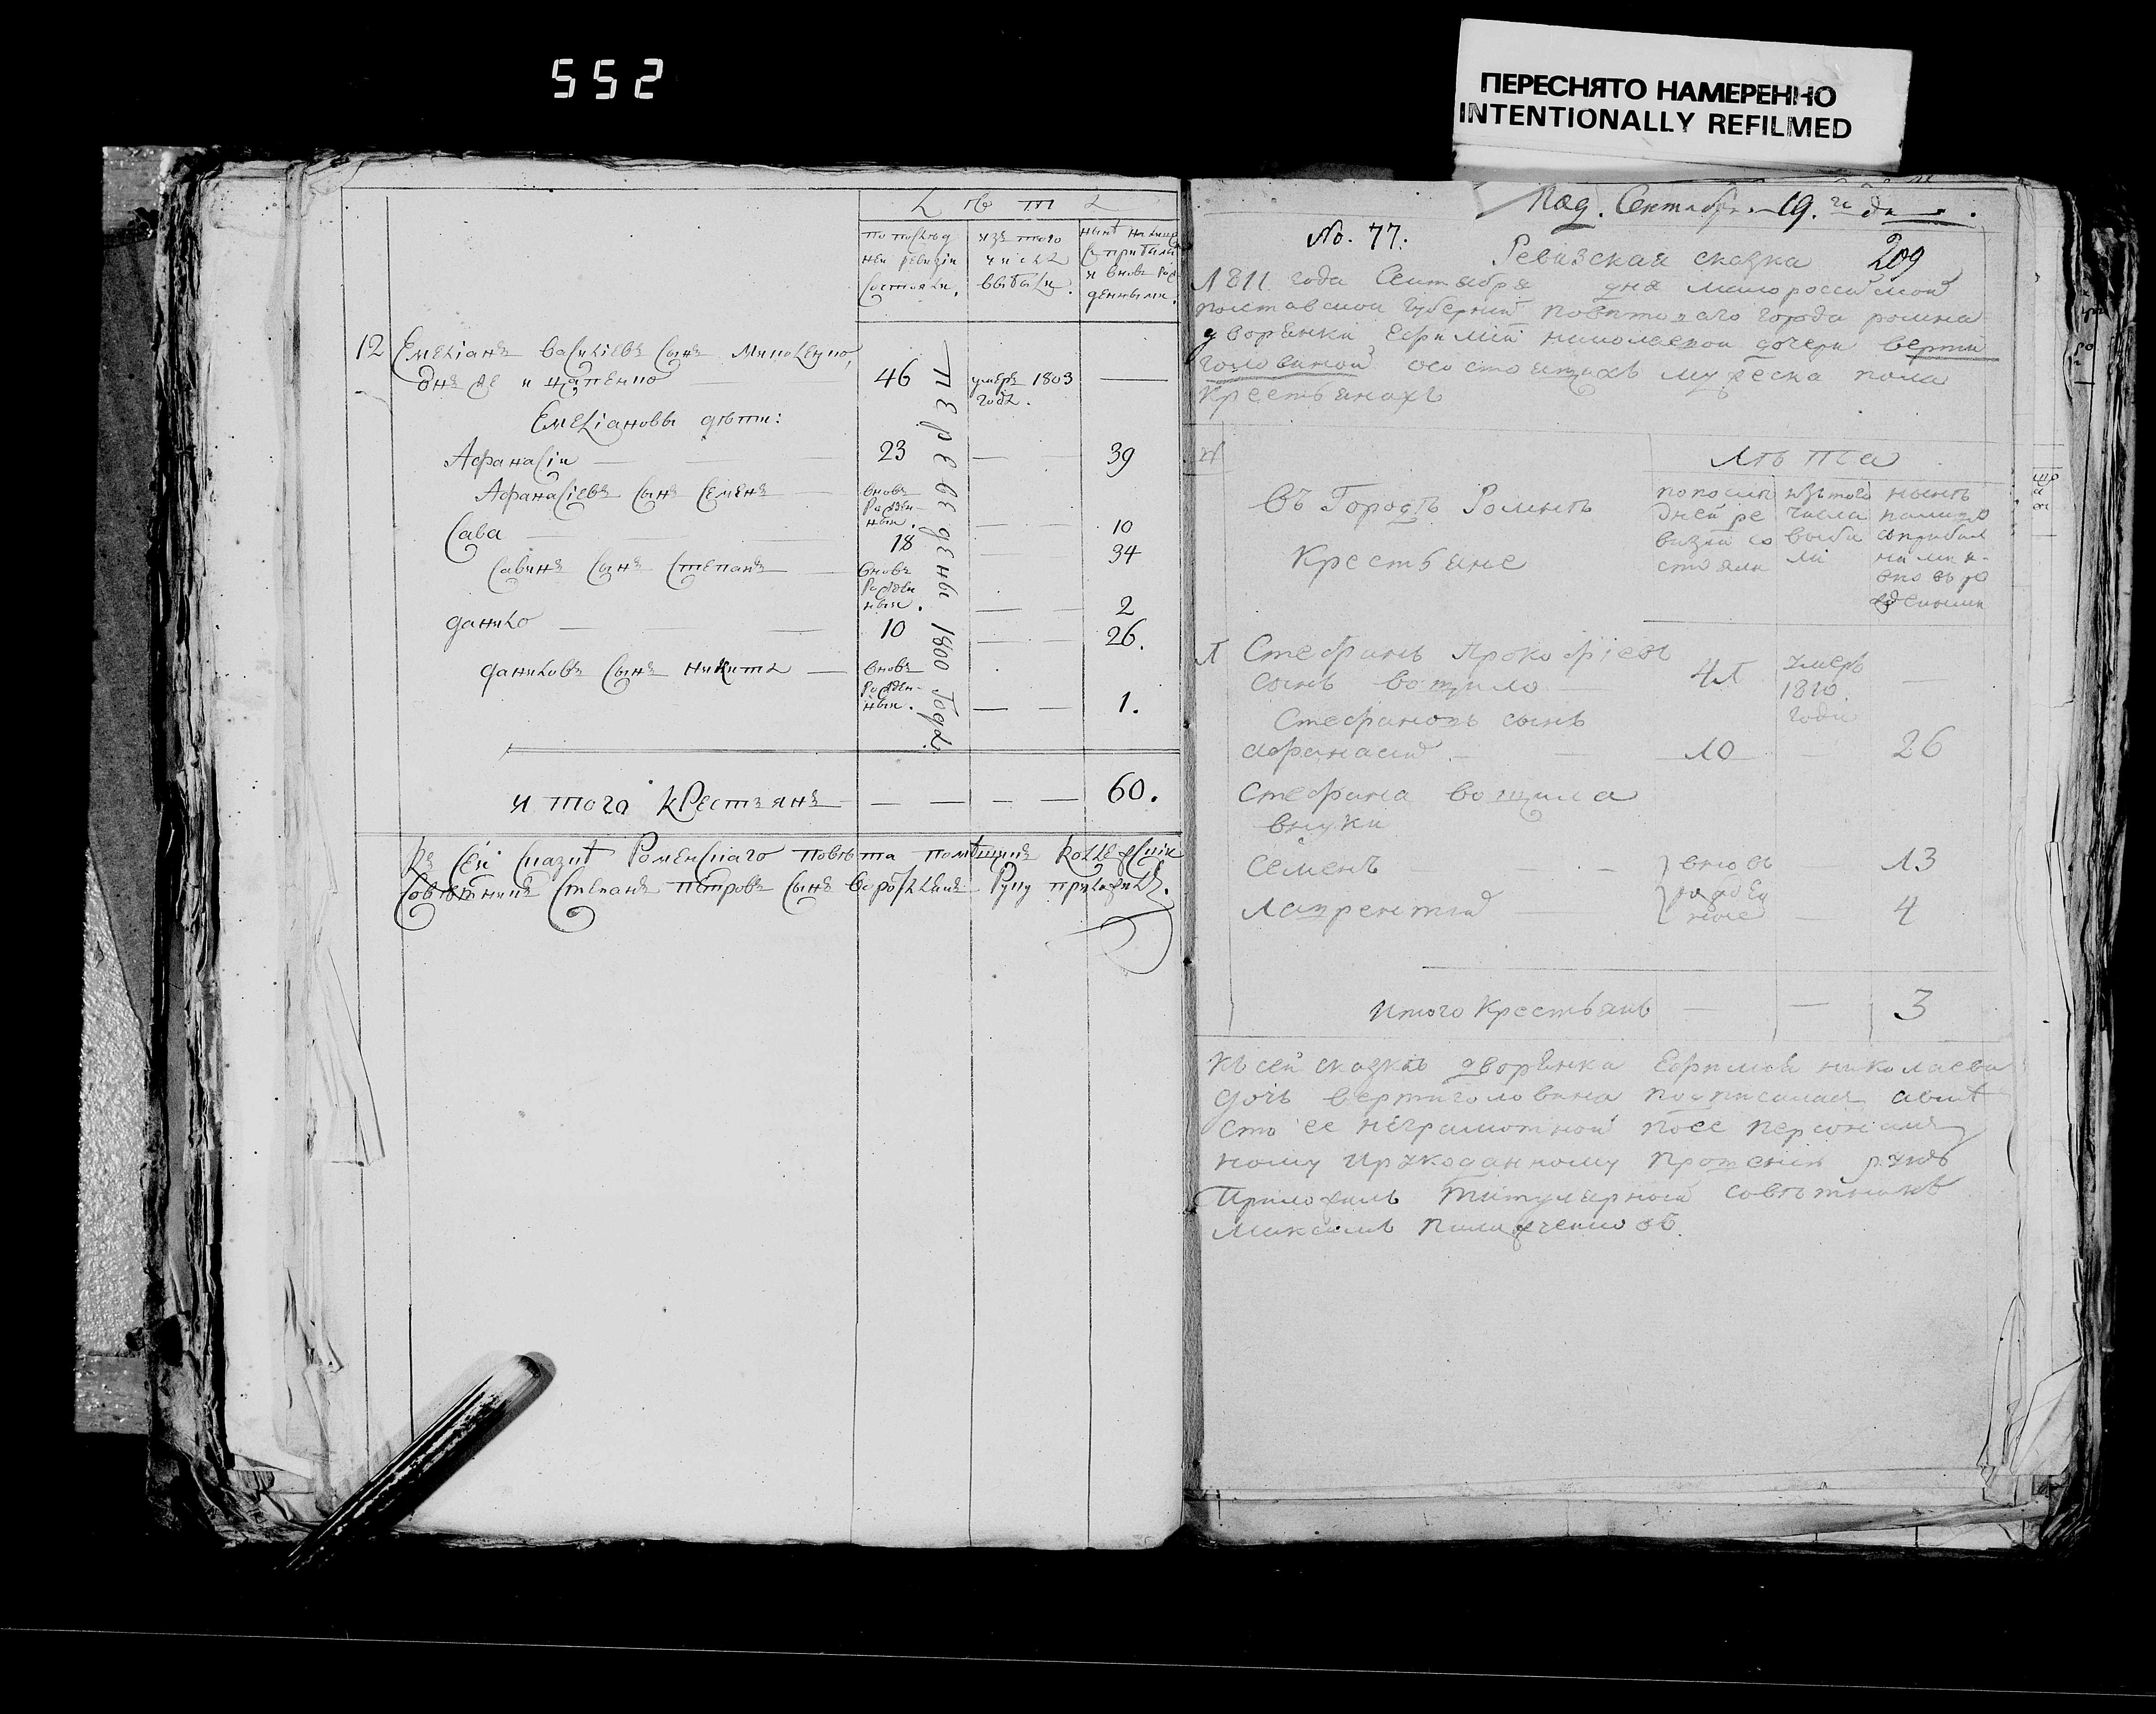 552
ПЕРЕСНЯТО НАМЕРЕННО
INTENTIONALLY REFILMED
лѣта
по послѣд
ней ревизіи
состояли.
изъ того
числа
выбыли.
нынѣ на лицо
с прибыли
и вновь рож
денными.
12 Емеліянъ Васильевъ сынъ
онъ же и Цапенко — 46 умеръ 1803 —
года.
переведены 1800 года.
Емеліяновы дѣти:
Афанасіи — 23 — — 39
Афанасіевъ сынъ Семенъ — вновь
рожден-
ныи. — — 10
Сава — 18 — 34
Савинъ сынъ Степанъ — вновь
рожден
ныи. — — 2
Данило — 10 — — 26.
Даниловъ сынъ Никита — вновь
рожден-
ныи. — — 1.
и того крестьянъ — — — — 60.
Къ сей сказкѣ Роменскаго повѣта помѣщикъ коллежскіи
совѣтникъ Степанъ Петровъ сынъ руку приложилъ.
Под. Сентября 19. го дня.
No. 77.
Ревизская сказка 209
1811 года Сентября дня малороссійской
полтавской губерніи повѣтоваго города ромна
дворянки Ефиміи николаевой дочери верти
головиной о состоящихъ мужеска пола
крестьянахъ
лѣта
въ Городѣ Ромнѣ
Крестьяне
по послѣ
дней ре
визіи со
стояли
изъ того
числа
выбы
ли
нынѣ
налицо
с прибыл
ными и
вновь ро
жденными
1 Стефанъ Прокофіевъ
сынъ вощило — 41 умеръ
1810
года —
Стефановъ сынъ
Афанасій — — 10 — 26
Стефана вощила
внуки
Семенъ — — — вновь 13
Лаврентій — рожден
ные — 4
Итого Крестьянъ — — 3
Къ сей сказкѣ дворянка Ефимія николаева
дочь вертиголовина подписалась авмѣ
сто ее неграмотной по ее персональ
ному и рукоданному прошенію руку
Приложилъ титулярной совѣтникъ
Максимъ